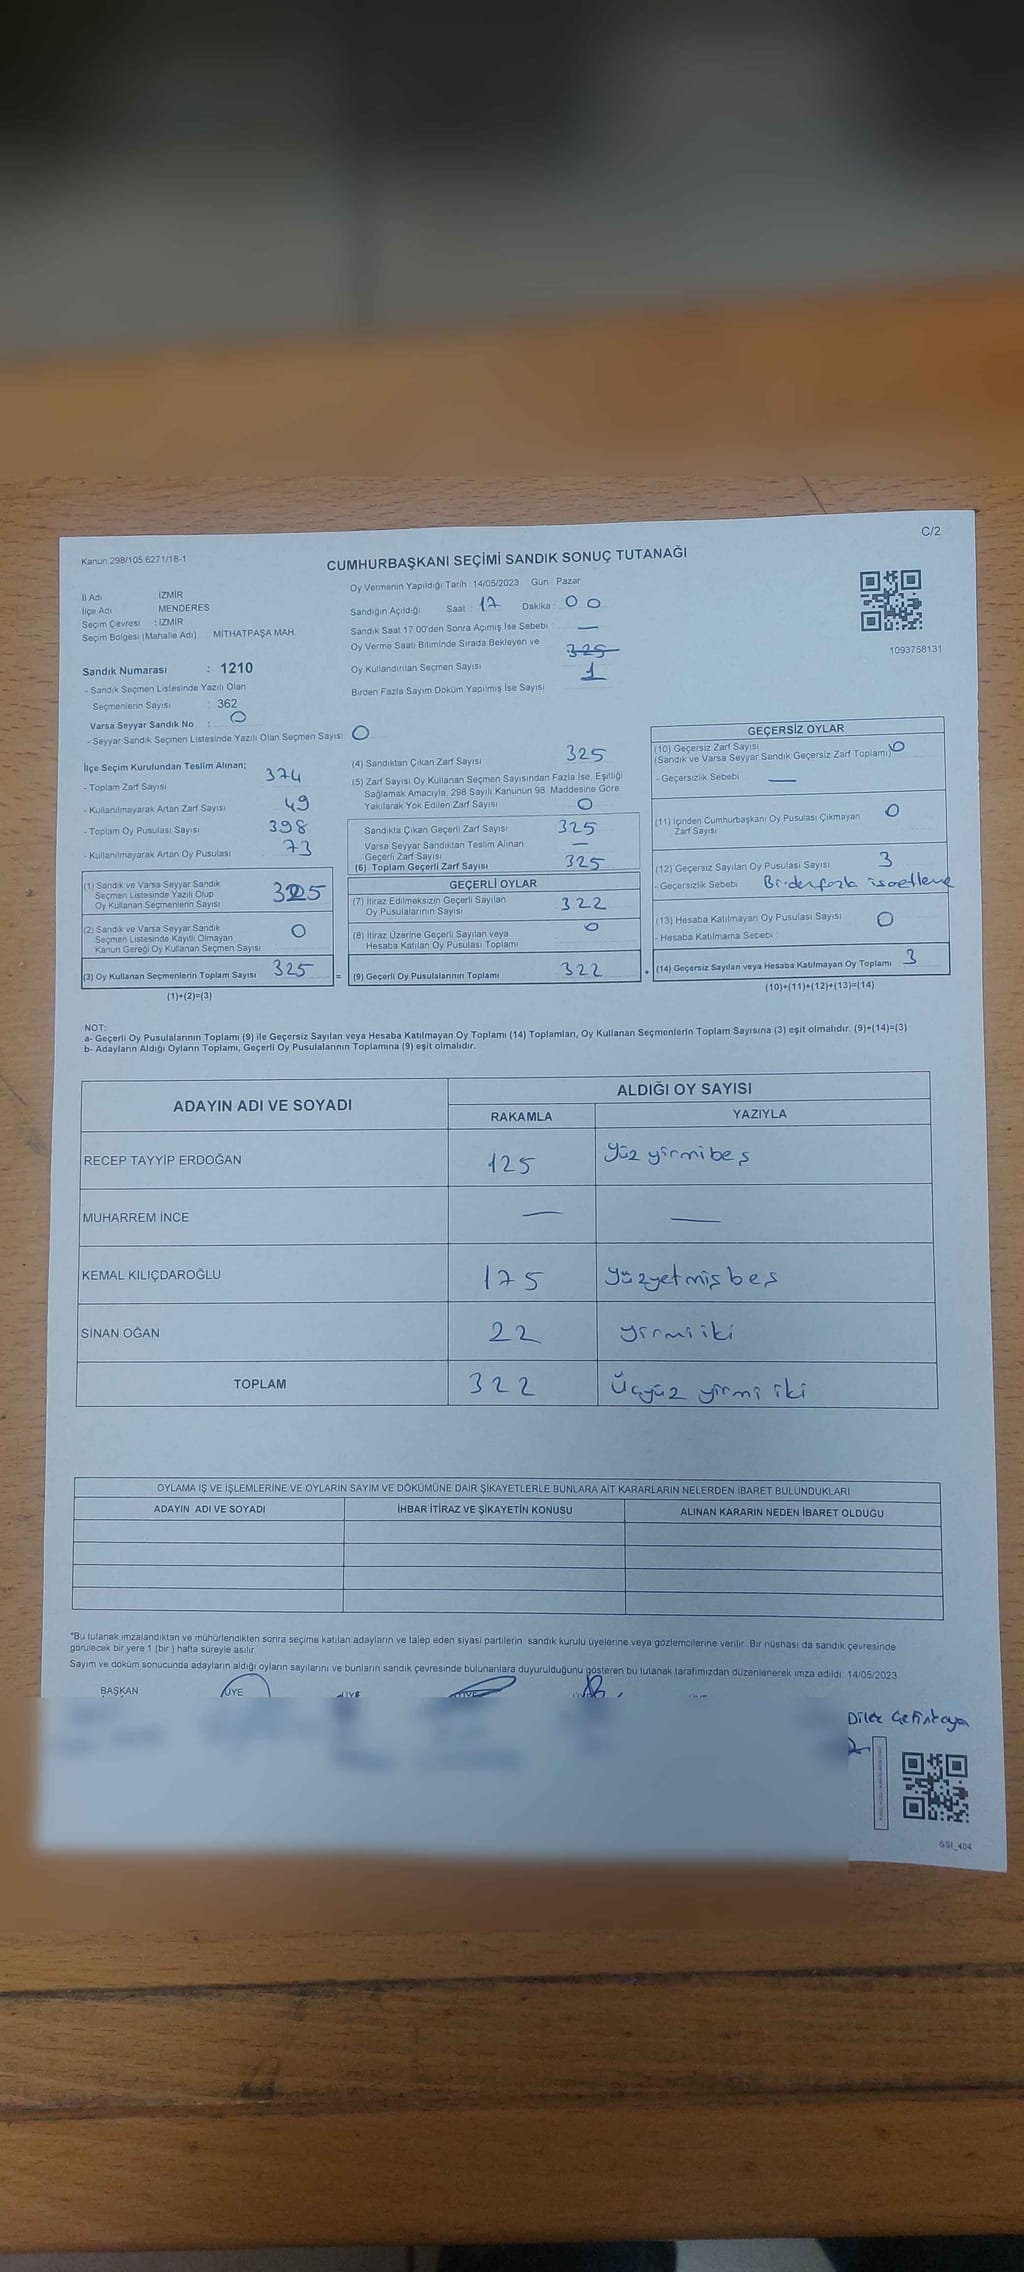 C/2
Kanun:298/105 6271/18-1
CUMHURBAŞKANI SEÇİMİ SANDIK SONUÇ TUTANAĞI
Oy Vermenin Yapıldığı Tarih : 14/05/2023 Gün Pazar
İl Adı : İZMİR
İlçe Adı MENDERES
Seçim Çevresi : İZMİR
Seçim Bölgesi (Mahalle Adı) MİTHATPAŞA MAH.
Sandığın Açıldığı Saat : 17 Dakika : 00
Sandık Saat 17:00'den Sonra Açımış İse Sebebi : —
Oy Verme Saati Bitiminde Sırada Bekleyen ve 325
Oy Kullandırılan Seçmen Sayısı 1
Birden Fazla Sayım Döküm Yapılmış İse Sayısı
1093758131
Sandık Numarası : 1210
- Sandık Seçmen Listesinde Yazılı Olan
Seçmenlerin Sayısı : 362
Varsa Seyyar Sandık No : 0
- Seyyar Sandık Seçmen Listesinde Yazılı Olan Seçmen Sayısı: 0
İlçe Seçim Kurulundan Teslim Alınan;
- Toplam Zarf Sayısı 374
- Kullanılmayarak Artan Zarf Sayısı 49
- Toplam Oy Pusulası Sayısı 398
- Kullanılmayarak Artan Oy Pusulası 73
(1) Sandık ve Varsa Seyyar Sandık
Seçmen Listesinde Yazılı Olup
Oy Kullanan Seçmenlerin Sayısı 325
(2) Sandık ve Varsa Seyyar Sandık
Seçmen Listesinde Kayıtlı Olmayan
Kanun Gereği Oy Kullanan Seçmen Sayısı 0
(3) Oy Kullanan Seçmenlerin Toplam Sayısı 325 =
(1)+(2)=(3)
(4) Sandıktan Çıkan Zarf Sayısı 325
(5) Zarf Sayısı Oy Kullanan Seçmen Sayısından Fazla İse, Eşitliği
Sağlamak Amacıyla, 298 Sayılı Kanunun 98. Maddesine Göre
Yakılarak Yok Edilen Zarf Sayısı 0
Sandıkta Çıkan Geçerli Zarf Sayısı 325
Varsa Seyyar Sandıktan Teslim Alınan
Geçerli Zarf Sayısı —
(6) Toplam Geçerli Zarf Sayısı 325
GEÇERLİ OYLAR
(7) İtiraz Edilmeksizin Geçerli Sayılan
Oy Pusulalarının Sayısı 322
(8) İtiraz Üzerine Geçerli Sayılan veya
Hesaba Katılan Oy Pusulası Toplamı 0
(9) Geçerli Oy Pusulalarının Toplamı 322 +
GEÇERSİZ OYLAR
(10) Geçersiz Zarf Sayısı
(Sandık ve Varsa Seyyar Sandık Geçersiz Zarf Toplamı) 0
- Geçersizlik Sebebi —
(11) İçinden Cumhurbaşkanı Oy Pusulası Çıkmayan
Zarf Sayısı 0
(12) Geçersiz Sayılan Oy Pusulası Sayısı 3
- Geçersizlik Sebebi Birdenfazla isaetleme
(13) Hesaba Katılmayan Oy Pusulası Sayısı 0
- Hesaba Katılmama Sebebi :
(14) Geçersiz Sayılan veya Hesaba Katılmayan Oy Toplamı 3
(10)+(11)+(12)+(13)=(14)
NOT:
a- Geçerli Oy Pusulalarının Toplamı (9) ile Geçersiz Sayılan veya Hesaba Katılmayan Oy Toplamı (14) Toplamları, Oy Kullanan Seçmenlerin Toplam Sayısına (3) eşit olmalıdır. (9)+(14)=(3)
b- Adayların Aldığı Oyların Toplamı, Geçerli Oy Pusulalarının Toplamına (9) eşit olmalıdır.
ADAYIN ADI VE SOYADI
ALDIĞI OY SAYISI
RAKAMLA YAZIYLA
RECEP TAYYİP ERDOĞAN 125 Yüz yirmibeş
MUHARREM İNCE — —
KEMAL KILIÇDAROĞLU 175 Yüzyetmişbeş
SİNAN OĞAN 22 yirmi iki
TOPLAM 322 Üçyüz yirmi iki
OYLAMA İŞ VE İŞLEMLERİNE VE OYLARIN SAYIM VE DÖKÜMÜNE DAİR ŞİKAYETLERLE BUNLARA AİT KARARLARIN NELERDEN İBARET BULUNDUKLARI
ADAYIN ADI VE SOYADI İHBAR İTİRAZ VE ŞİKAYETİN KONUSU ALINAN KARARIN NEDEN İBARET OLDUĞU
*Bu tutanak imzalandıktan ve mühürlendikten sonra seçime katılan adayların ve talep eden siyasi partilerin sandık kurulu üyelerine veya gözlemcilerine verilir. Bir nüshası da sandık çevresinde
görülecek bir yere 1 (bir ) hafta süreyle asılır.
Sayım ve döküm sonucunda adayların aldığı oyların sayılarını ve bunların sandık çevresinde bulunanlara duyurulduğunu gösteren bu tutanak tarafımızdan düzenlenerek imza edildi. 14/05/2023
BAŞKAN ÜYE ÜYE
Dilek Çetinkaya
SSI_404